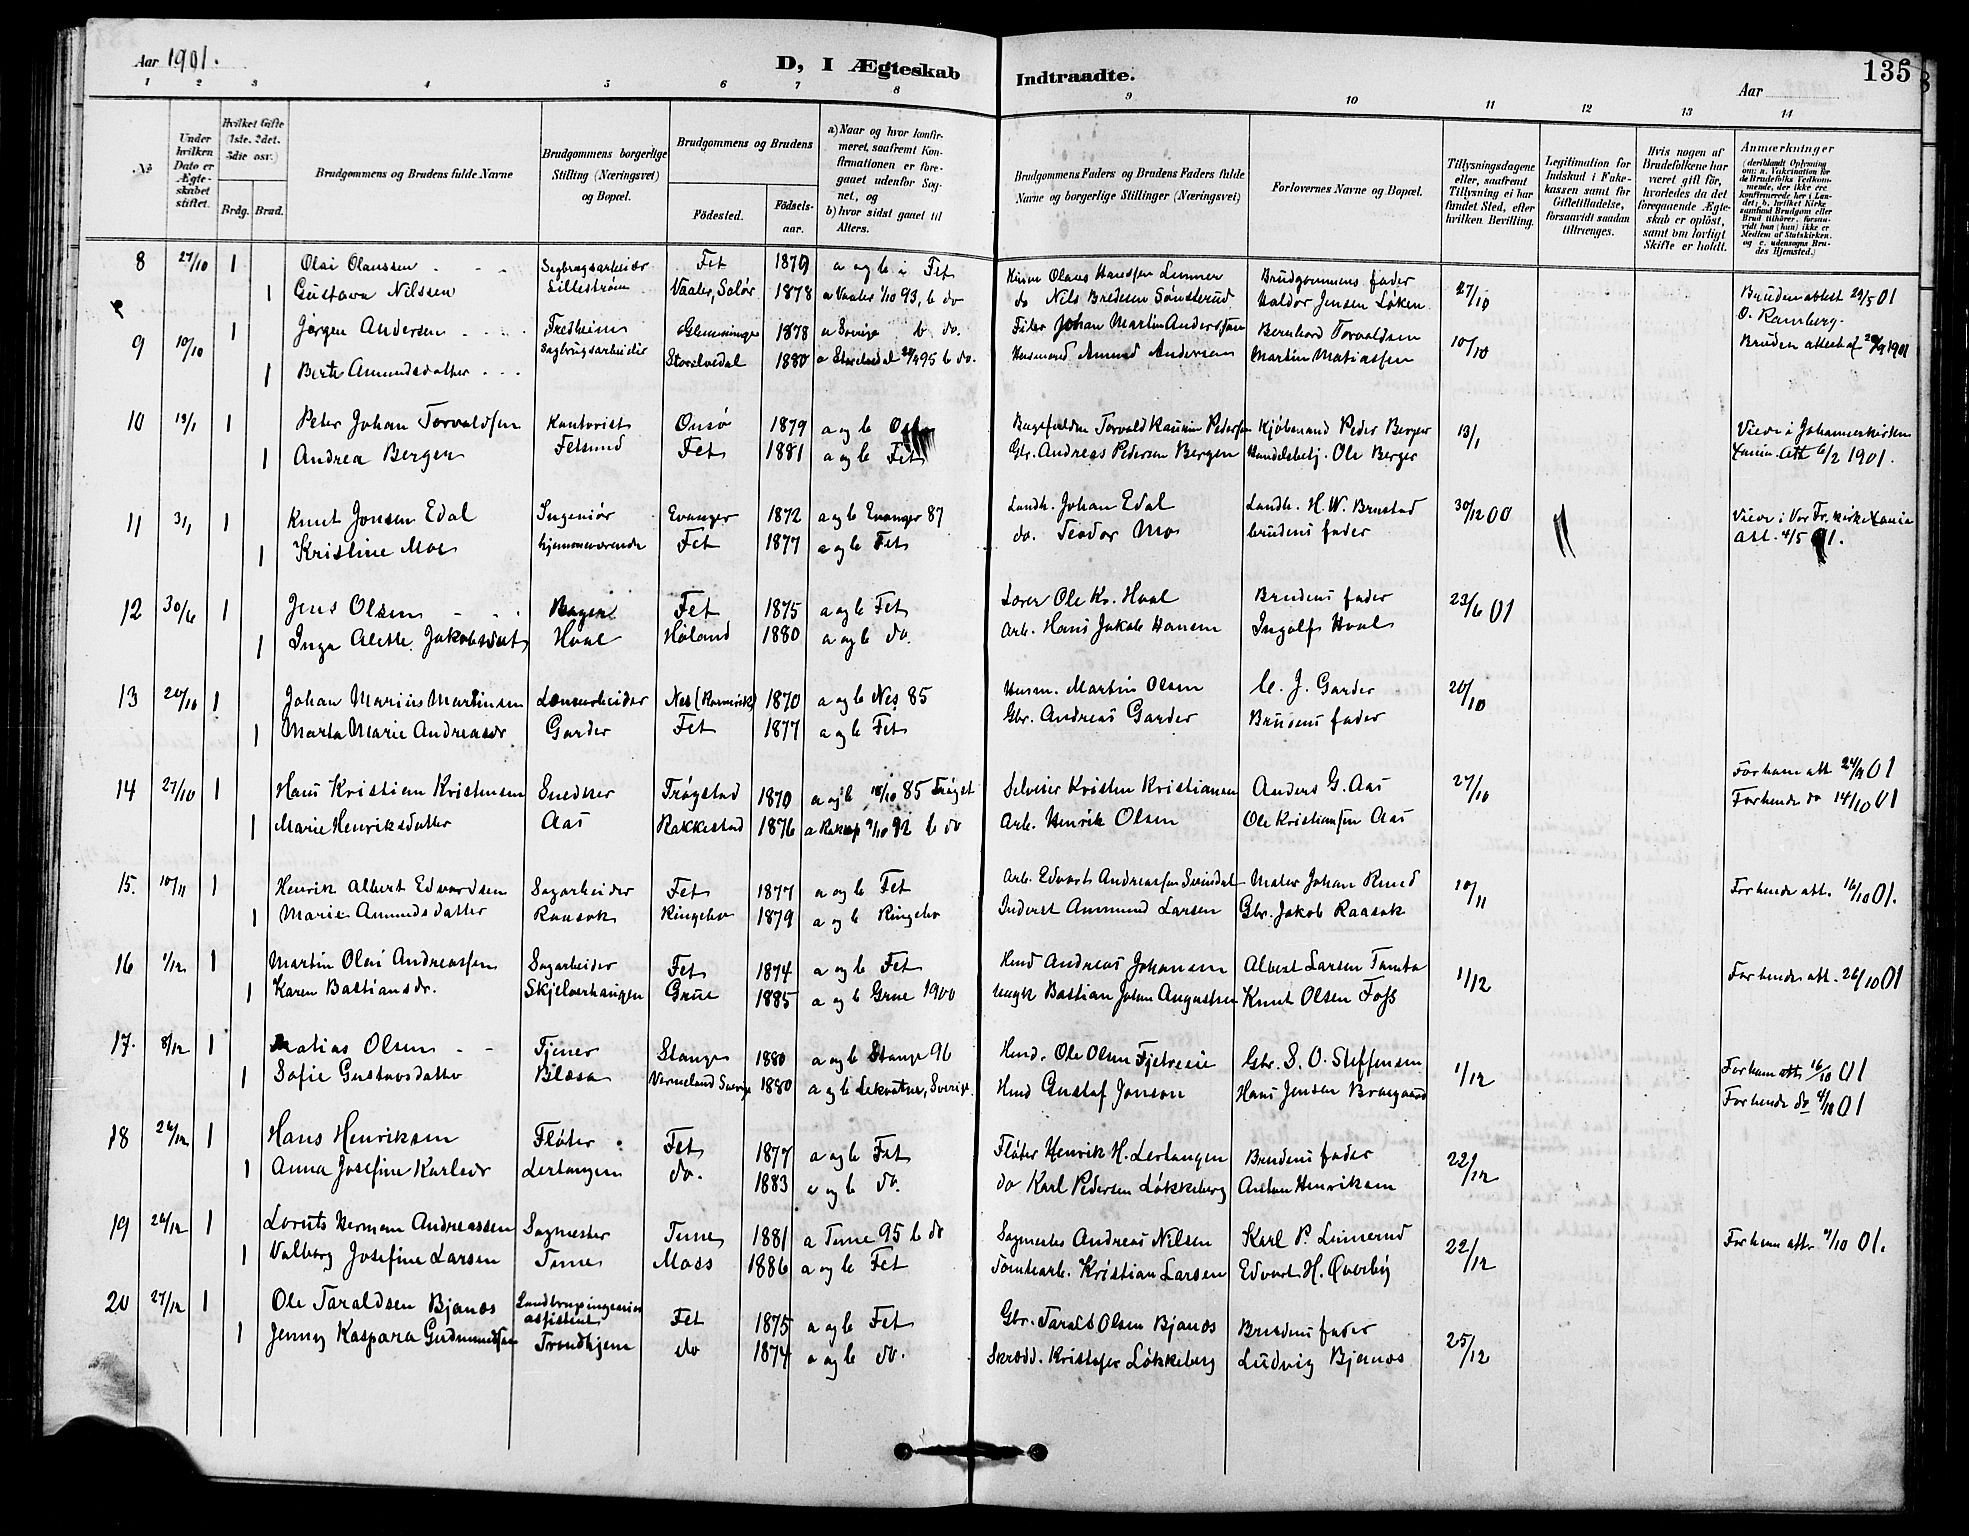 Aar 1901.
D, I Ægteskab Indtraadte.
135
Aar
1 2 3 4 5 6 7 8 9 10 11 12 13 14
No
Under hvilken Dato er Ægteskabet stiftet.
Hvilket Gifte (1ste, 2det, 3die osv.)
Brdg. Brud.
Brudgommens og Brudens fulde Navne
Brudgommens borgerlige Stilling (Næringsvei) og Bopæl.
Brudgommens og Brudens
Födested.
Födselsaar.
a) Naar og hvor konfirmeret, saafremt Konfirmationen er foregaaet udenfor Sognet, og
b) hvor sidst gaaet til Alters.
Brudgommens Faders og Brudens Faders fulde Navne og borgerlige Stillinger (Næringsvei)
Forlovernes Navne og Bopæl.
Tillysningsdagene eller, saafremt Tillysning ei har fundet Sted, efter hvilken Bevilling.
Legitimation for Indskud i Enkekassen samt for Giftetilladelse, forsaavidt saadan tiltrænges.
Hvis nogen af Brudefolkene har været gift för, hvorledes da det foregaaende Ægteskab er oplöst, samt om lovligt Skifte er holdt.
Anmærkninger (deriblandt Oplysning om: a. Vakcination for de Brudefolks Vedkommende, der ikke ere konfirmerede her i Landet; b. hvilket Kirkesamfund Brudgom eller Brud tilhörer, forsaavidt han (hun) ikke er Medlem af Statskirken, og c. udensogns Brudes Hjemsted.)
8 27/10 1 Olai Olaussen Sagbrugsarbeider Fet 1879 a og b i Fet Husm Olaus Hansen Lunner Brudgommens fader 27/10 Brudens attest 29/5 01
1 Gustava Nilssen Lillestrøm Vaaler, Solør 1878 a Vaaler 1/10 93, b do do Nils Bredesen Sønsterud Haldor Jensen Løken O. Ramberg.
9 10/10 1 Jørgen Andersen Fredheim Glemminge 1878 a Sverige b do. Johan Martin Anderssen Bernhard Torvaldsen 10/10 Bruden attest af 1901
1 Berte Amundsdatter Sagbrugsarbeider Storelvedal 1880 a Storelvedal 95 b do. Husmand Amund Andersen Martin Matiassen
10 13/1 1 Peter Johan Torvaldsen Kontorist Onsø 1879 a og b Torvald Pedersen Kjøbmand Peder Berger 13/1 Viede i Johanneskirken
1 Andrea Bergen Fetsund Fet 1881 a og b Fet Gbr. Andreas Pedersen Bergen Handelsbetj. Ole Berger Xania Att 6/2 1901.
11 3/1 1 Knut Jonsen Edal Ingeniør Evanger 1872 a og b Evanger 87 Landh. Johan Edal Landh. H. W. Brustad 30/12 00 Viede i Vor Fr. kirke Xania
1 Kristine Moe hjemmeværende Fet 1877 a og b Fet do. Teodor Mo brudens fader Att. 4/5 01.
12 30/6 1 Jens Olsen Bager Fet 1875 a og b Fet Lærer Ole Kr. Hval Brudens fader 23/6 01
1 Inga Alette Jakobsdatt Hval Høland 1880 a og b do. Arb. Hans Jakob Hansen Ingolf Hval
13 20/10 1 Johan Marius Martinsen Lensearbeider Nes 1870 a og b Nes 85 Husm. Martin Olsen M. J. Garder 20/10
1 Marta Marie Andreasdr Garder Fet 1877 a og b Fet Gbr. Andreas Garder Brudens fader
14 27/10 1 Hans Kristian Kristensen Snedker Trøgstad 1870 a og b 18/10 85 Trøgst Selveier Kristen Kristiansen Anders G. Aas 27/10 For ham att 24/9 01
1 Marie Henriksdatter Aas Rakkestad 1876 a Rakkesp 9/10 92 b do Arb. Henrik Olsen Ole Kristiansen Aas For hende do 14/10 01
15. 10/11 1 Henrik Albert Edvardsen Sagarbeider Fet 1877 a og b Fet Arb. Edvart Andreassen Svindal Maler Johan Rund 10/11 For hende att. 16/10 01.
1 Marie Amundsdatter Raasok Ringebo 1879 a og b Ringebo Inderst Ammund Larsen Gbr. Jakob Raasok
16 1/12 1 Martin Olai Andreassen Sagarbeider Fet 1874 a og b Fet Hmd Andreas Johansen Albert Larsen Tomta 1/12 For hende att. 26/10 01
1 Karen Bastiansdr. Skjelverhaugen Grue 1885 a og b Grue 1900 Bastian Johan Augustsen Knut Olsen Foss
17. 8/12 1 Matias Olsen Tjener Stange 1880 a og b Stange 96 Hmd. Ole Olsen Fjetreeie Gbr. S. O. Steffensen 1/12 For ham att 16/10 01
1 Sofie Gustavsdatter Blæsa Vermeland Sverige 1880 a og b Lekvatne, Sverige. Hmd Gustaf Jonson Hans Jensen Braagaard For hende do 4/10 01
18 26/12 1 Hans Henriksen Fløter Fet 1877 a og b Fet Fløter Henrik H. Lertangen Brudens fader 22/12
1 Anna Josefine Karlsdr Lertangen do. 1883 a og b do. do Karl Pedersen Løkkeberg Anton Henriksen
19 26/12 1 Lorents Herman Andreassen Sagmester Tune 1881 a Tune 95 b do Sagmester Andreas Nilsen Karl P. Linnerud 22/12 For ham att 9/10 01.
1 Valborg Josefine Larsen Tune Moss 1886 a og b Fet Tomtearb. Kristian Larsen Edvart H. Øverby
20 27/12 1 Ole Taraldsen Bjanes Landbrugsingeniør assistent Fet 1875 a og b Fet Gbr. Taralt Olsen Bjanes Brudens fader 25/12
1 Jenny Kaspara Gudmundsen Trondhjem do 1874 a og b do. Skrædd. Kristofer Løkkeberg Ludvig Bjanes